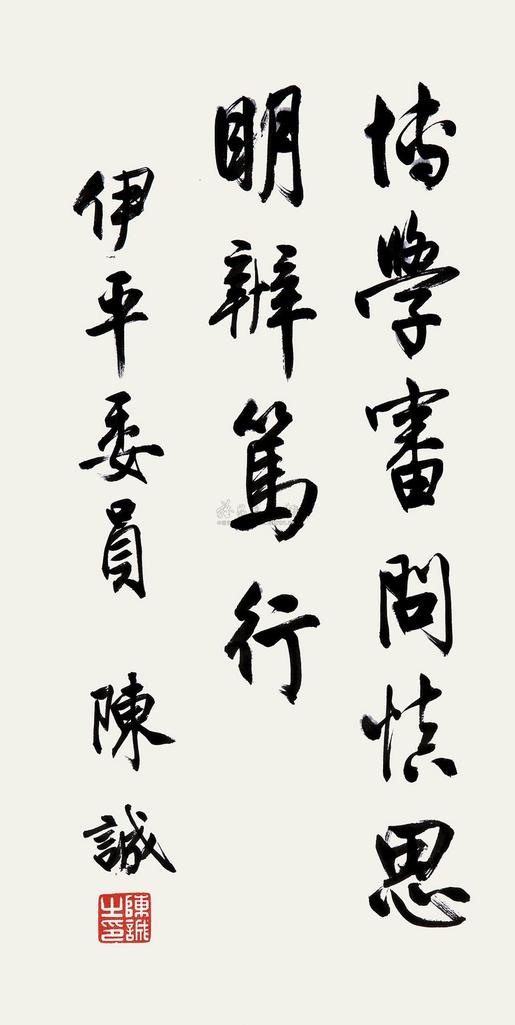 博學審問慎思
明辨篤行
伊平委員 陳誠
陳誠之印